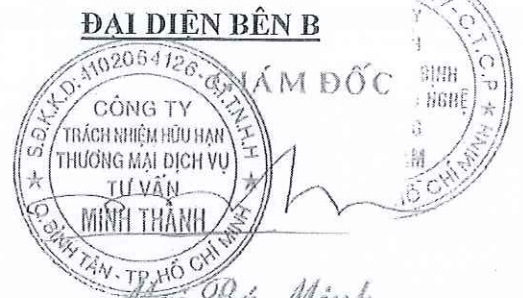 ĐẠI DIỆN BÊN B
GIÁM ĐỐC
S.Đ.K.K.D: 4102054126-C.T.T.N.H.H
CÔNG TY
TRÁCH NHIỆM HỮU HẠN
THƯƠNG MẠI DỊCH VỤ
TƯ VẤN
MINH THÀNH
Q. BÌNH TÂN - TP. HỒ CHÍ MINH
-C.T.C.P
BINH
NGHỆ
HỒ CHÍ MINH
Minh